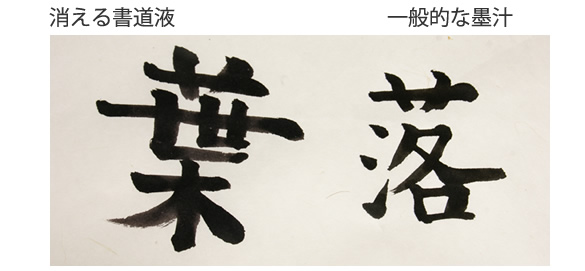 消える書道液 一般的な墨汁
葉 落